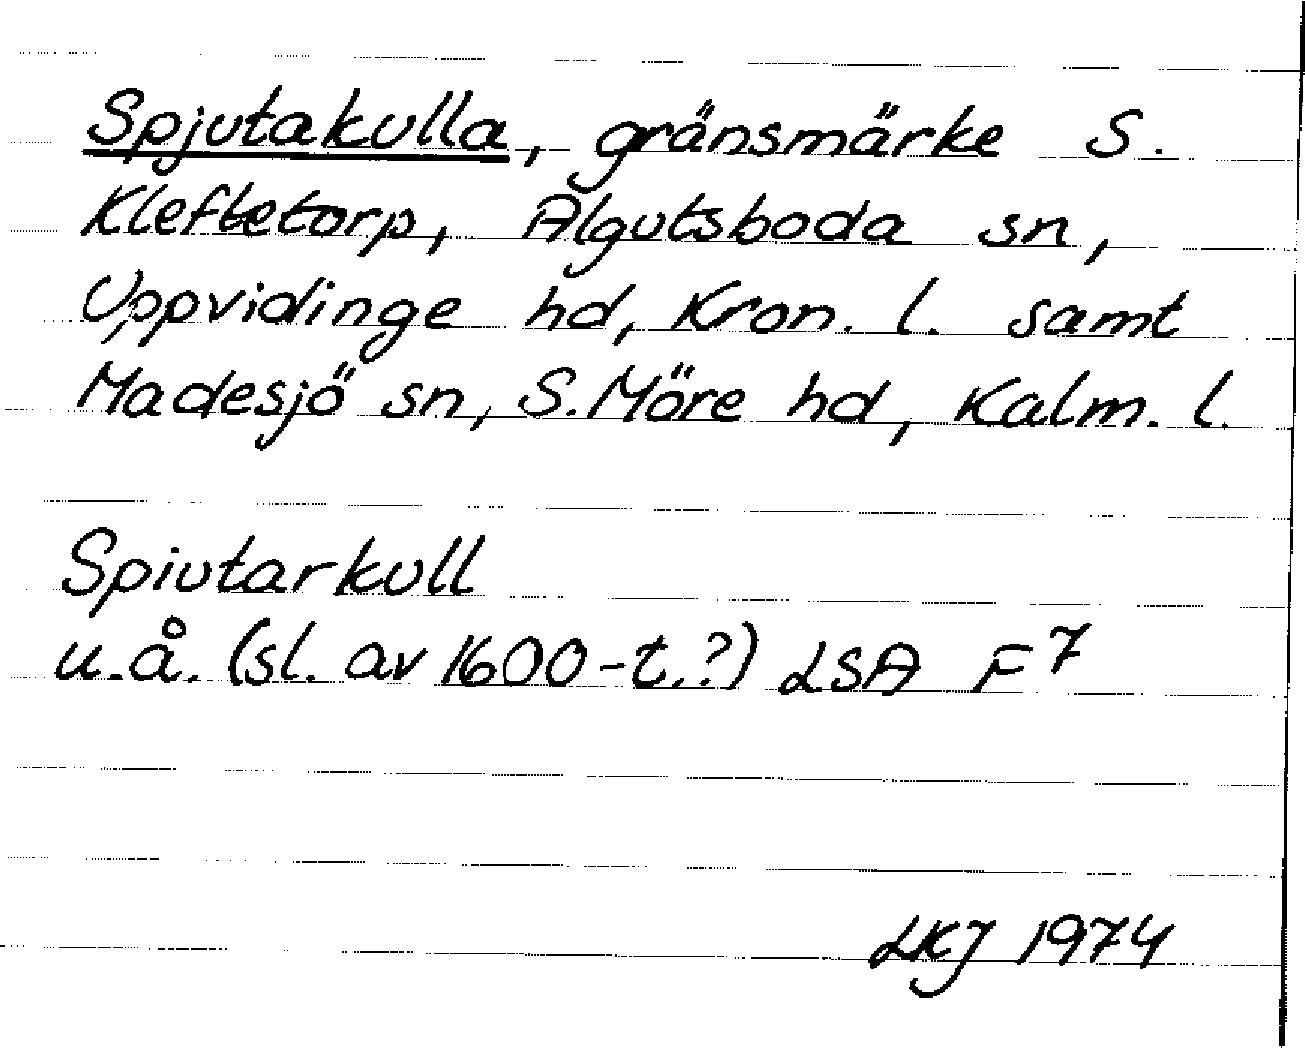 Spjutakulla, gränsmärke S.
Kleftetorp, Algutsboda sn,
Uppvidinge hd, Kron. l. samt
Madesjö sn, S. Möre hd, Kalm. l.
Spiutarkull
u.å. (sl. av 1600-t.?) LSA F⁷
LKJ 1974